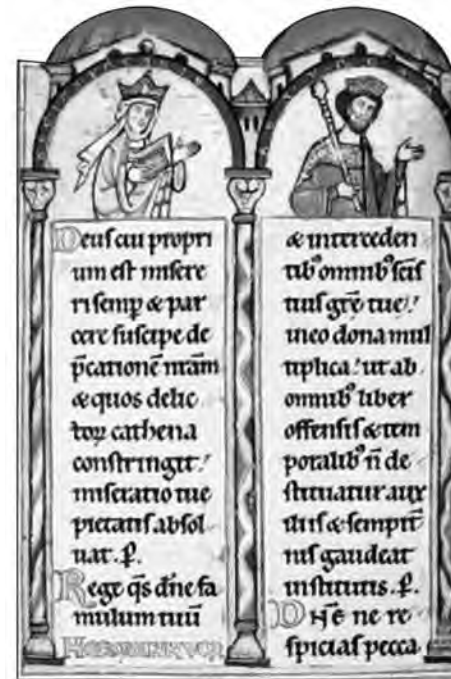 Deus cui propri
um est misere
ri semp & par
cere suscipe de
p̄cationē nr̄am
& quos delic
toꝝ cathena
constringit.
miseratio tue
pietatis absol
uat. P̄.
Rege q̄s dn̄e fa
mulum tuū
& interceden
tib' omnib' sc̄is
tuis gr̄e tue.
in eo dona mul
tiplica. ut ab
omnib' liber
offensis & tem
poralib' n̄ de
stituatur aux
iliis & sempit̄
nis gaudeat
institutis. P̄.
ne re
spicias pecca